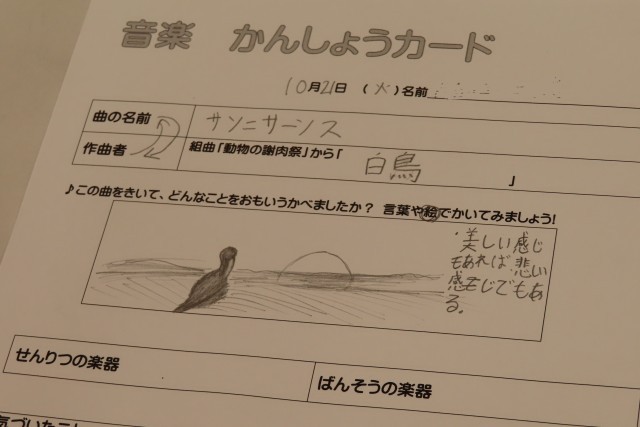 音楽 かんしょうカード
10月21日 (火)名前
曲の名前 サン=サーンス
作曲者 組曲「動物の謝肉祭」から「 白鳥 」
♪この曲をきいて、どんなことをおもいうかべましたか? 言葉や絵でかいてみましょう!
・美しい感じ
もあれば悲い
感もじでもあ
る。
せんりつの楽器 ばんそうの楽器